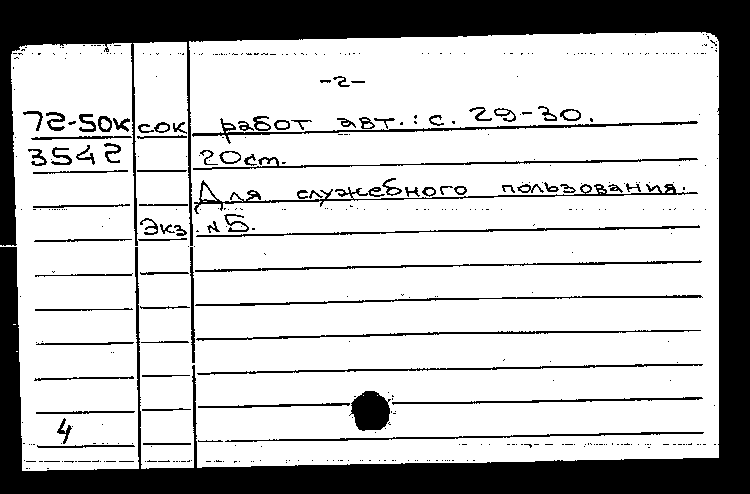 -2-
72-50к сок работ авт.: с. 29-30.
3542 20см.
Для служебного пользования.
Экз. №5.
4